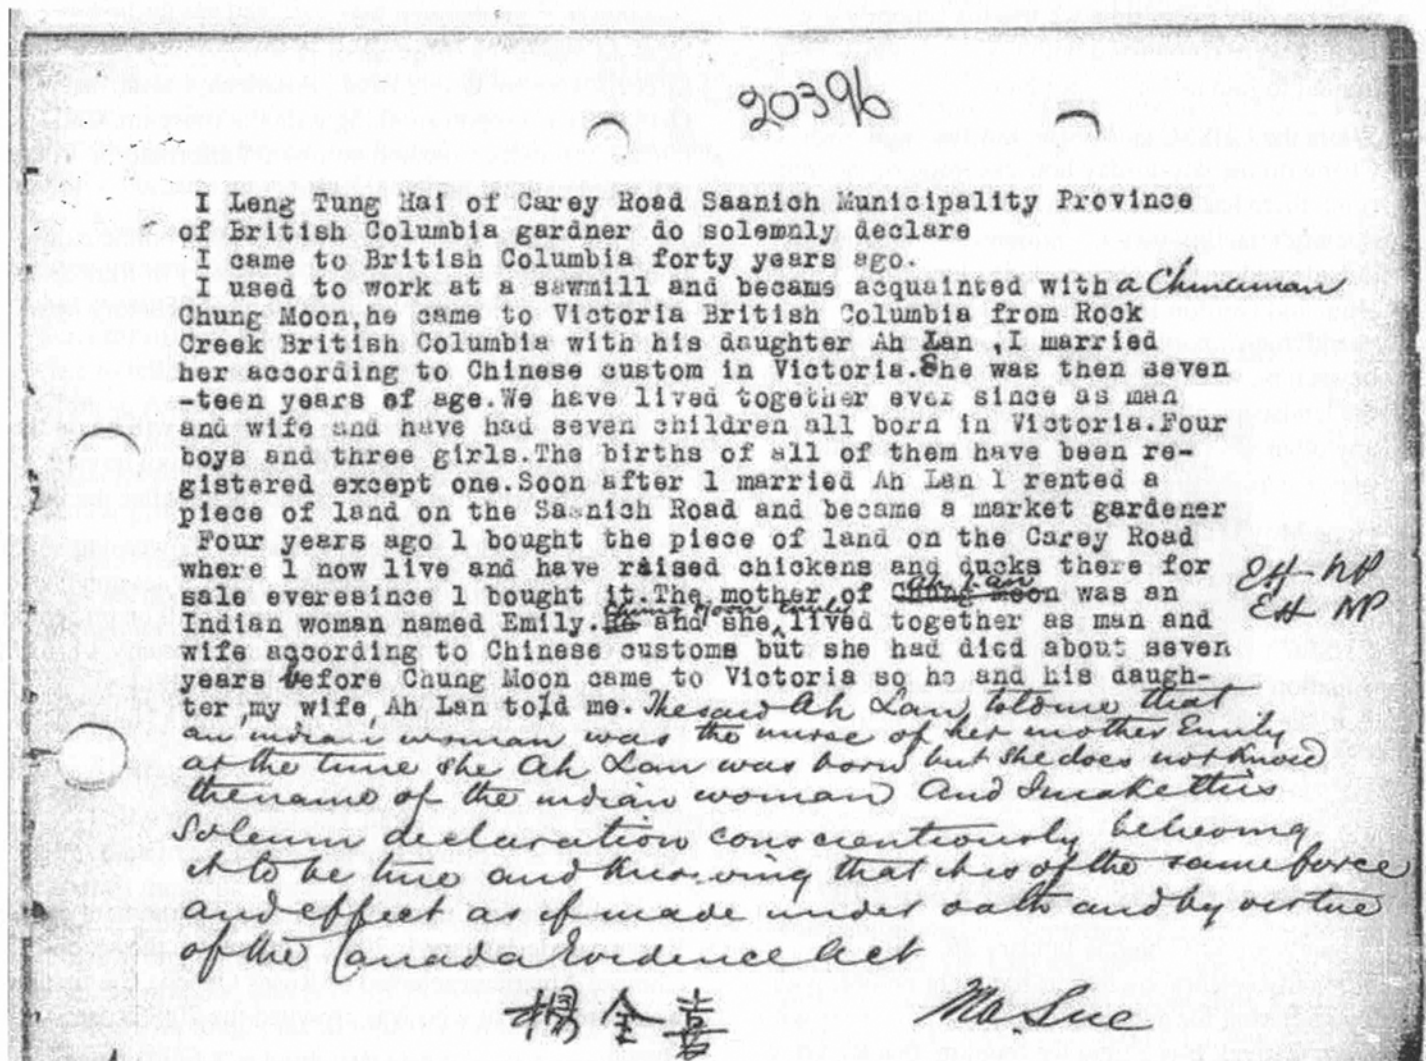 20396
I Leng Tung Hai of Carey Road Saanich Municipality Province
of British Columbia gardner do solemnly declare
I came to British Columbia forty years ago.
I used to work at a sawmill and became acquainted with a Chinaman
Chung Moon,he came to Victoria British Columbia from Rock
Creek British Columbia with his daughter Ah Lan ,I married
her according to Chinese custom in Victoria.She was then seven
-teen years of age.We have lived together ever since as man
and wife and have had seven children all born in Victoria.Four
boys and three girls.The births of all of them have been re-
gistered except one.Soon after l married Ah Lan l rented a
piece of land on the Saanich Road and became a market gardener
Four years ago l bought the piece of land on the Carey Road
where l now live and have raised chickens and ducks there for
Ah Lan
sale everesince l bought it.The mother of Chung Moon was an
EH - NP
Chung Moon Emily
Indian woman named Emily.He and she lived together as man and
EH NP
wife according to Chinese customs but she had died about seven
years before Chung Moon came to Victoria so he and his daugh-
ter,my wife,Ah Lan told me. The said Ah Lan told me that
an indian woman was the nurse of her mother Emily
at the time she Ah Lan was born but she does not know
the name of the indian woman And I make this
Solemn declaration conscientiously believing
it to be true and knowing that it is of the same force
and effect as if made under oath and by virtue
of the Canada Evidence Act